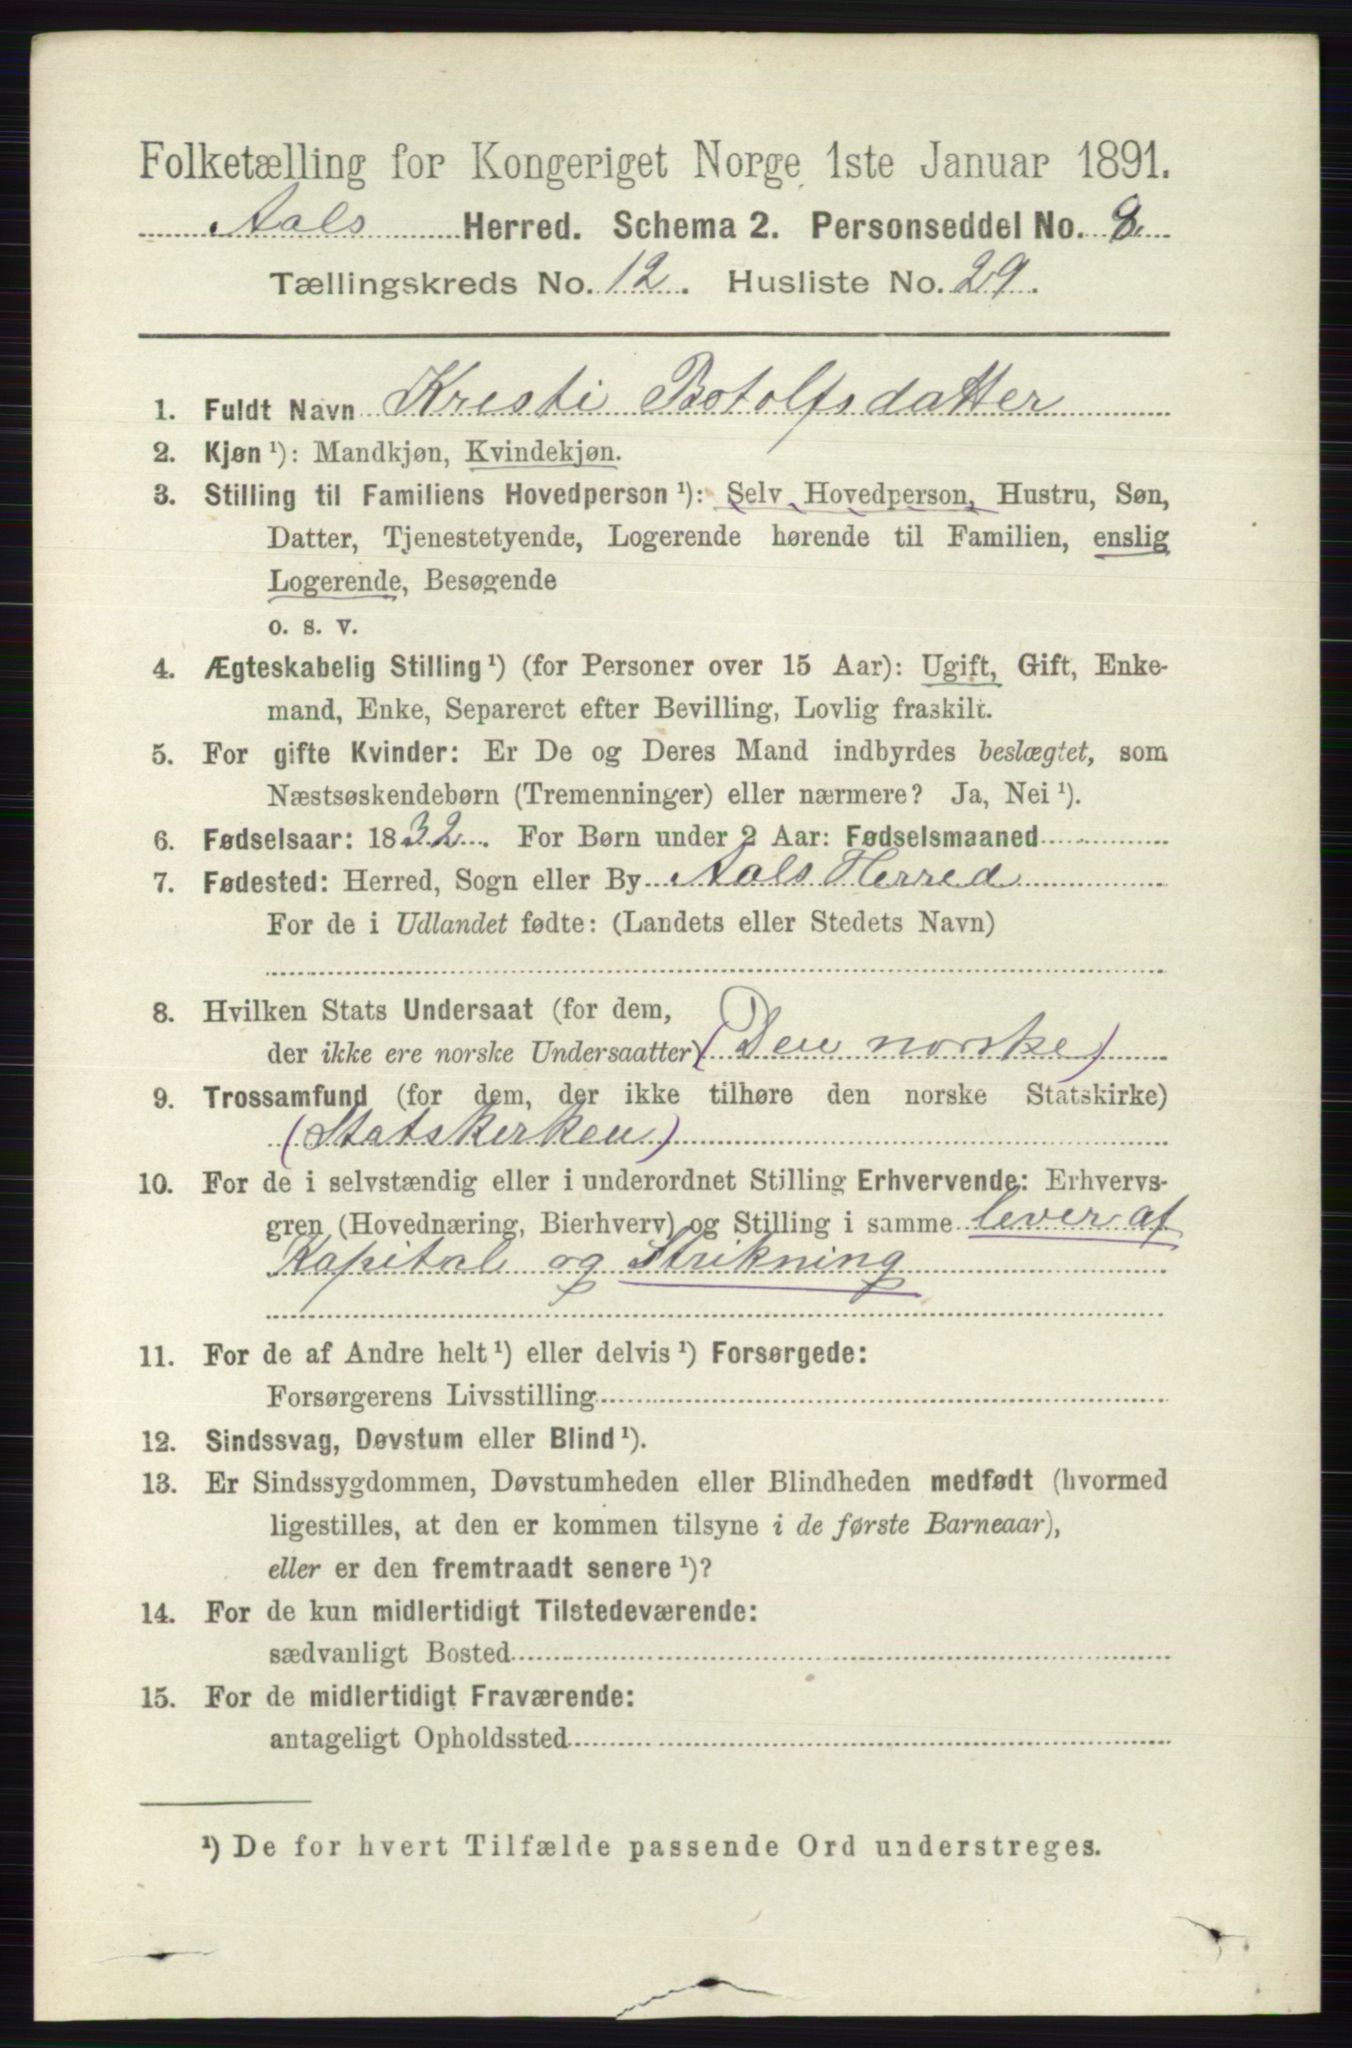 Folketælling for Kongeriget Norge 1ste Januar 1891.
Aals Herred. Schema 2. Personseddel No. 8
Tællingskreds No. 12. Husliste No. 29.
1. Fuldt Navn Kristi Botolfsdatter
2. Kjøn ¹): Mandkjøn, Kvindekjøn.
3. Stilling til Familiens Hovedperson ¹): Selv Hovedperson, Hustru, Søn,
Datter, Tjenestetyende, Logerende hørende til Familien, enslig
Logerende, Besøgende
o. s. v.
4. Ægteskabelig Stilling ¹) (for Personer over 15 Aar): Ugift, Gift, Enke-
mand, Enke, Separeret efter Bevilling, Lovlig fraskilt.
5. For gifte Kvinder: Er De og Deres Mand indbyrdes beslægtet, som
Næstsøskendebørn (Tremenninger) eller nærmere? Ja, Nei ¹).
6. Fødselsaar: 1832. For Børn under 2 Aar: Fødselsmaaned
7. Fødested: Herred, Sogn eller By Aals Herred
For de i Udlandet fødte: (Landets eller Stedets Navn)
8. Hvilken Stats Undersaat (for dem,
der ikke ere norske Undersaatter) (Den norske)
9. Trossamfund (for dem, der ikke tilhøre den norske Statskirke)
(Statskerken)
10. For de i selvstændig eller i underordnet Stilling Erhvervende: Erhvervs-
gren (Hovednæring, Bierhverv) og Stilling i samme lever af
Kapital og Strikning
11. For de af Andre helt ¹) eller delvis ¹) Forsørgede:
Forsørgerens Livsstilling
12. Sindssvag, Døvstum eller Blind ¹).
13. Er Sindssygdommen, Døvstumheden eller Blindheden medfødt (hvormed
ligestilles, at den er kommen tilsyne i de første Barneaar),
eller er den fremtraadt senere ¹)?
14. For de kun midlertidigt Tilstedeværende:
sædvanligt Bosted
15. For de midlertidigt Fraværende:
antageligt Opholdssted
¹) De for hvert Tilfælde passende Ord understreges.